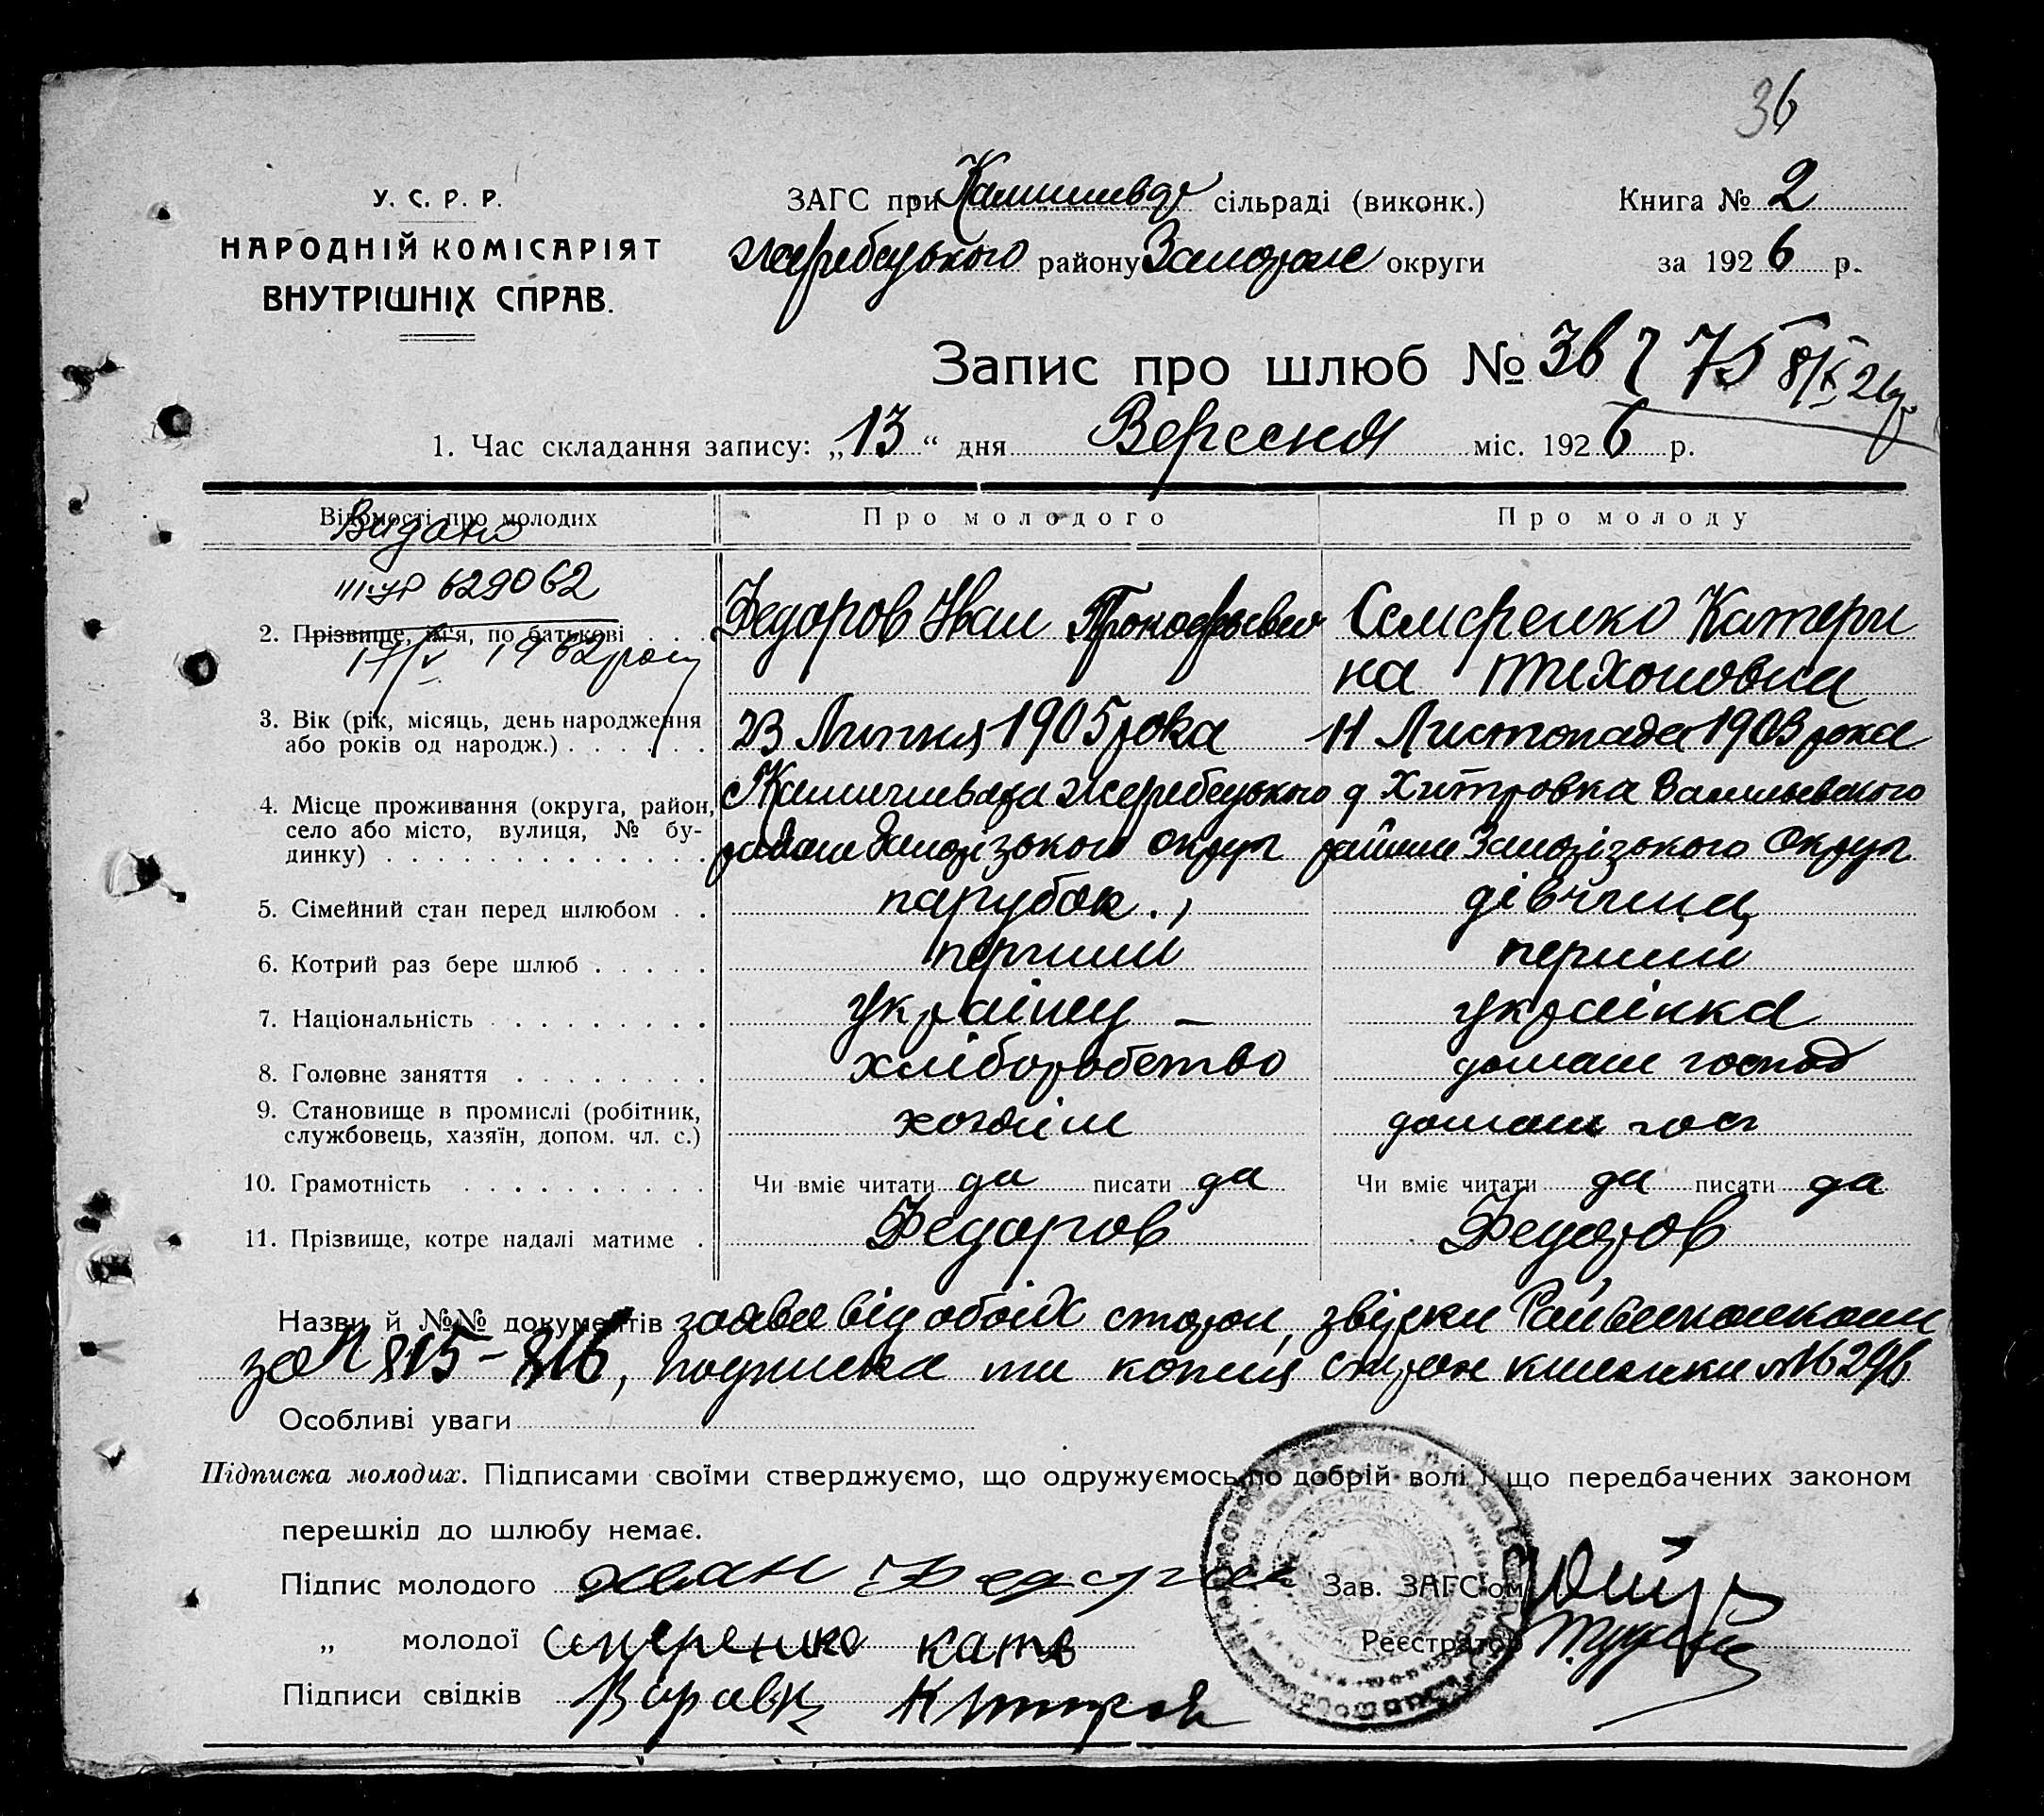 36
У. С. Р. Р.
НАРОДНІЙ КОМІСАРІЯТ
ВНУТРІШНІХ СПРАВ.
ЗАГС при сільраді (виконк.)
Жеребецького району Запорожс округи
Книга № 2
за 1926 р.
Запис про шлюб № 36 75 8/X 26 р.
1. Час складання запису: „13“ дня Вересня міс. 1926 р.
Відомості про молодих Про молодого Про молоду
Видано
629062
2. Прізвище, ім'я, по батькові . . . Федоров Иван Прокофьевич Семеренко Катери
17/V 1962 року
на Тихоновна
3. Вік (рік, місяць, день народження 23 Липня 1905 рока 11 Листопада 1903 рока
або років од народж.) . . . . . .
4. Місце проживання (округа, район, Жеребецького д Хитровка Васильевского
село або місто, вулиця, № бу- району Запорізького Округи району Запорізького Округи
динку) . . . . . . . . . . . . .
5. Сімейний стан перед шлюбом . . парубок дівчина
6. Котрий раз бере шлюб . . . . . перший перший
7. Національність . . . . . . . . українец – українка
8. Головне заняття . . . . . . . . хліборобство домаш господ
9. Становище в промислі (робітник, хозяїн домаш госп
службовець, хазяїн, допом. чл. с.)
10. Грамотність . . . . . . . . . . Чи вміє читати да писати да Чи вміє читати да писати да
11. Прізвище, котре надалі матиме . Федоров Федоров
Назви й №№ документів заява від обоїх сторон,
за N 815-816, подписка та копия книжки № 6296
Особливі уваги
Підписка молодих. Підписами своїми стверджуємо, що одружуємось по добрій волі і що передбачених законом
перешкід до шлюбу немає.
Підпис молодого Иван Федоров Зав. ЗАГС'ом
„ молодої Семеренко Катя Реєстратор
Підписи свідків